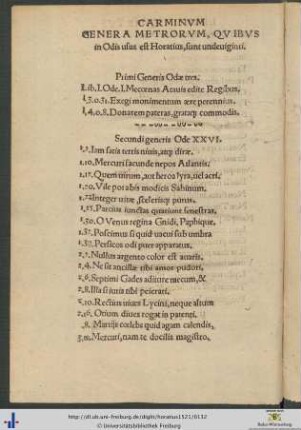 CARMINVM
GENERA METRORVM, QVIBVS
in Odis usus est Horatius, sunt undeuiginti.
Primi Generis Odæ tres.
Lib. I. Ode. I. Mecœnas Atauis edite Regibus.
Exegi monimentum ære perennius.
Donatem pateras, grataq; commodis.
Secundi generis Ode XXVI.
Iam satis terris niuis, atq; diræ.
1.10. Mercuri facunde nepos Atlantis.
Quem uirum, aut heroa lyra, uel acri.
1.20. Vile potabis modicis Sabinum.
1.22. Integer uitæ, scelerisq; purus.
Parcius iunctas quatiunt fenestras.
O Venus regina Gnidi, Paphique.
Poscimus si quid uacui sub umbra
Persicos odi puer apparatus.
2.2. Nullus argento color est auaris.
2.4. Ne sit ancillæ tibi amor pudori.
2.6. Septimi Gades aditure mecum, &
2.8. Illa si iuris tibi peierati.
2.10. Rectius uiues Lycini, neque altum
2.16. Otium diues rogat in patenti.
8. Martijs cœlebs quid agam calendis,
Mercuri, nam te docilis magistro.
http://dl.ub.uni-freiburg.de/diglit/horatius1521/0132
© Universitätsbibliothek Freiburg